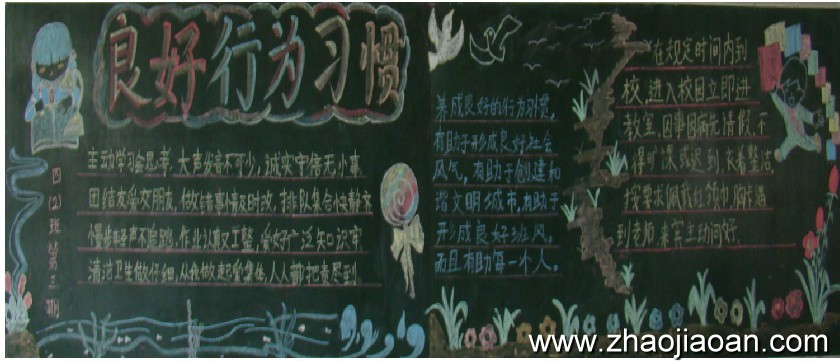 良好行为习惯
四(2)班 第三期
主动学习会思考，大声发言不可少，诚实守信无小事
团结友爱交朋友，做错事情及时改，排队集合快静齐
慢步轻声不追跑，作业认真又工整，爱好广泛知识牢
清洁卫生做仔细，从我做起爱集体，人人都把责尽到
养成良好的行为习惯，
有助于形成良好社会
风气，有助于创建和
谐文明城市，有助于
形成良好班风，
而且有助每一个人。
在规定时间内到
校，进入校园立即进
教室，因事因病先请假，不
得旷课或迟到，衣着整洁，
按要求佩戴红领巾，胸卡，遇
到老师，来宾主动问好。
www.zhaojiaoan.com